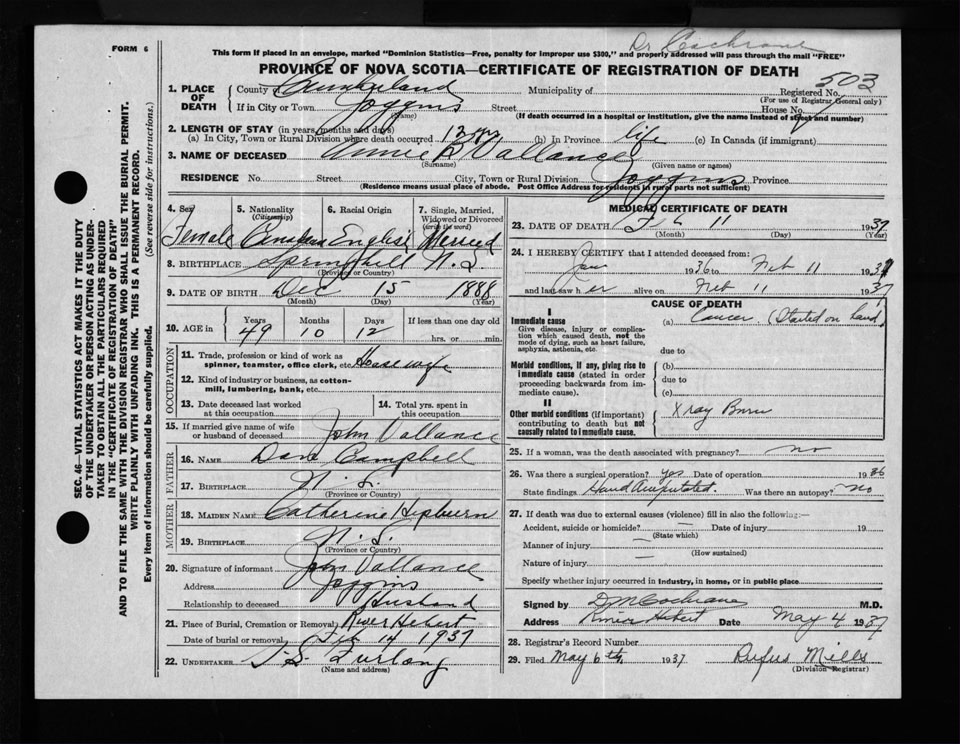 FORM 6
Dr Cochrane
This form if placed in an envelope, marked "Dominion Statistics—Free, penalty for improper use $300," and properly addressed will pass through the mail "FREE"
PROVINCE OF NOVA SCOTIA—CERTIFICATE OF REGISTRATION OF DEATH
503
1. PLACE OF DEATH
County of Cumberland Municipality of Registered No.
(For use of Registrar General only)
If in City or Town Joggins Street House No.
(Name) (If death occurred in a hospital or institution, give the name instead of street and number)
2. LENGTH OF STAY (in years, months and days)
(a) In City, Town or Rural Division where death occurred 12 (b) In Province life (c) In Canada (if immigrant)
3. NAME OF DECEASED Annie B Vallance
(Surname) (Given name or names)
RESIDENCE No. Street City, Town or Rural Division Joggins Province
(Residence means usual place of abode. Post Office Address for residents in rural parts not sufficient)
4. Sex Female
5. Nationality (Citizenship) Canadian
6. Racial Origin English
7. Single, Married, Widowed or Divorced (write the word) Married
8. BIRTHPLACE Springhill N.S.
(Province or Country)
9. DATE OF BIRTH Dec 15 1888
(Month) (Day) (Year)
10. AGE in Years Months Days If less than one day old
49 10 12 hrs. or min.
OCCUPATION
11. Trade, profession or kind of work as spinner, teamster, office clerk, etc. Housewife
12. Kind of industry or business, as cotton-mill, lumbering, bank, etc.
13. Date deceased last worked at this occupation
14. Total yrs. spent in this occupation
15. If married give name of wife or husband of deceased John Vallance
FATHER
16. NAME Dave Campbell
17. BIRTHPLACE N.S.
(Province or Country)
MOTHER
18. MAIDEN NAME Catherine Hepburn
19. BIRTHPLACE N.S.
(Province or Country)
20. Signature of informant John Vallance
Address Joggins
Relationship to deceased Husband
21. Place of Burial, Cremation or Removal River Hebert
Date of burial or removal Feb 14 1937
22. UNDERTAKER Furlong
(Name and address)
MEDICAL CERTIFICATE OF DEATH
23. DATE OF DEATH Feb 11 1937
(Month) (Day) (Year)
24. I HEREBY CERTIFY that I attended deceased from:
Jan 1936 to Feb 11 1937
and last saw her alive on Feb 11 1937
CAUSE OF DEATH
I
Immediate cause (a) Cancer (Started on hand)
Give disease, injury or complication which caused death, not the mode of dying, such as heart failure, asphyxia, asthenia, etc.
due to
Morbid conditions, if any, giving rise to immediate cause (stated in order proceeding backwards from immediate cause).
(b)
due to
(c)
II
Other morbid conditions (if important) contributing to death but not causally related to immediate cause. X ray Burn
25. If a woman, was the death associated with pregnancy? no
26. Was there a surgical operation? yes Date of operation 1936
State findings Hand Amputated. Was there an autopsy? no
27. If death was due to external causes (violence) fill in also the following:—
Accident, suicide or homicide? — Date of injury 19
(State which)
Manner of injury —
(How sustained)
Nature of injury —
Specify whether injury occurred in industry, in home, or in public place
Signed by D M Cochrane M.D.
Address River Hebert Date May 4 1937
28. Registrar's Record Number
29. Filed May 6th, 1937 Rufus Mills
(Division Registrar)
SEC. 46—VITAL STATISTICS ACT MAKES IT THE DUTY
OF THE UNDERTAKER OR PERSON ACTING AS UNDERTAKER TO OBTAIN ALL THE PARTICULARS REQUIRED
IN THE "CERTIFICATE OF REGISTRATION OF DEATH"
AND TO FILE THE SAME WITH THE DIVISION REGISTRAR WHO SHALL ISSUE THE BURIAL PERMIT.
WRITE PLAINLY WITH UNFADING INK. THIS IS A PERMANENT RECORD.
Every item of information should be carefully supplied. (See reverse side for instructions.)